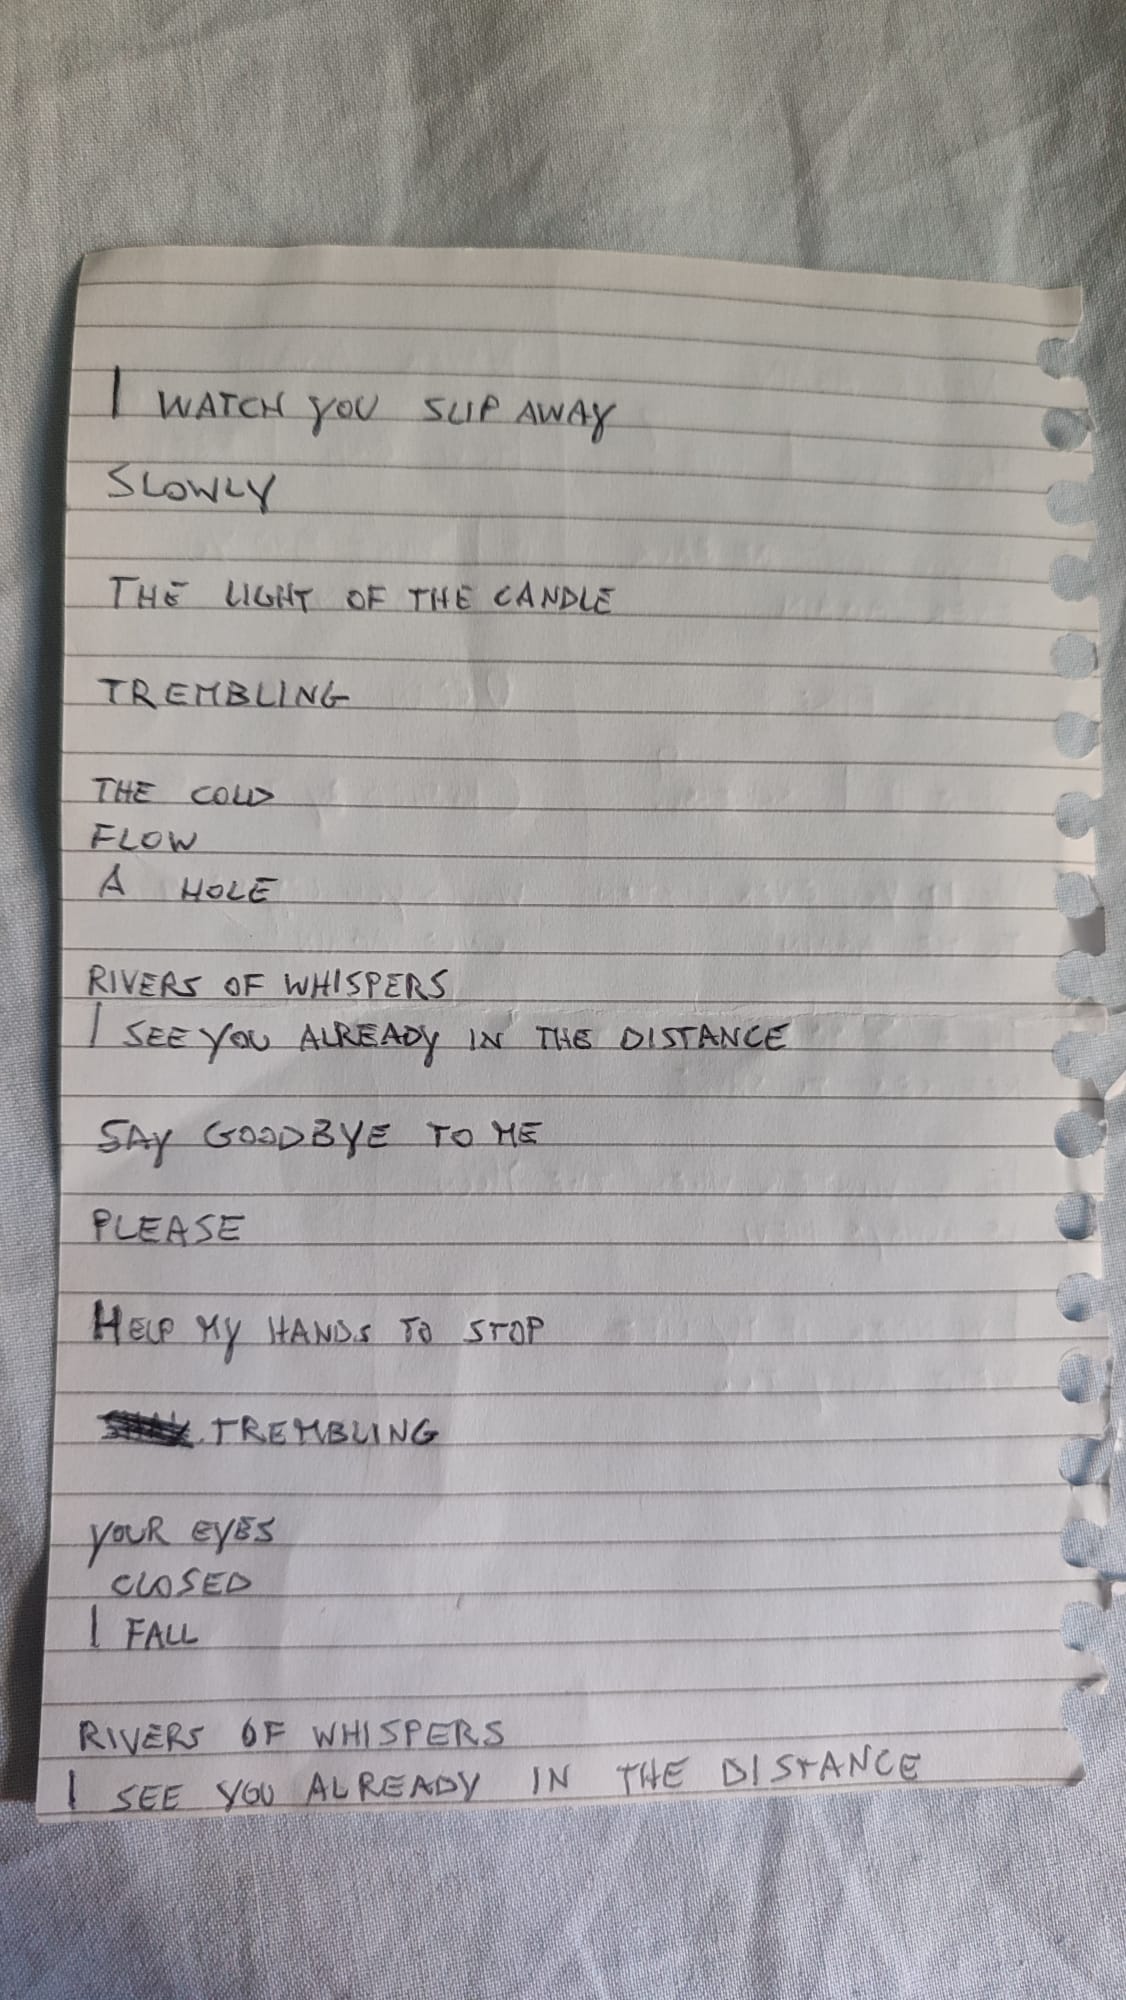 I WATCH YOU SLIP AWAY
SLOWLY
THE LIGHT OF THE CANDLE
TREMBLING
THE COLD
FLOW
A HOLE
RIVERS OF WHISPERS
I SEE YOU ALREADY IN THE DISTANCE
SAY GOODBYE TO ME
PLEASE
HELP MY HANDS TO STOP
TREMBLING
YOUR EYES
CLOSED
I FALL
RIVERS OF WHISPERS
I SEE YOU ALREADY IN THE DISTANCE